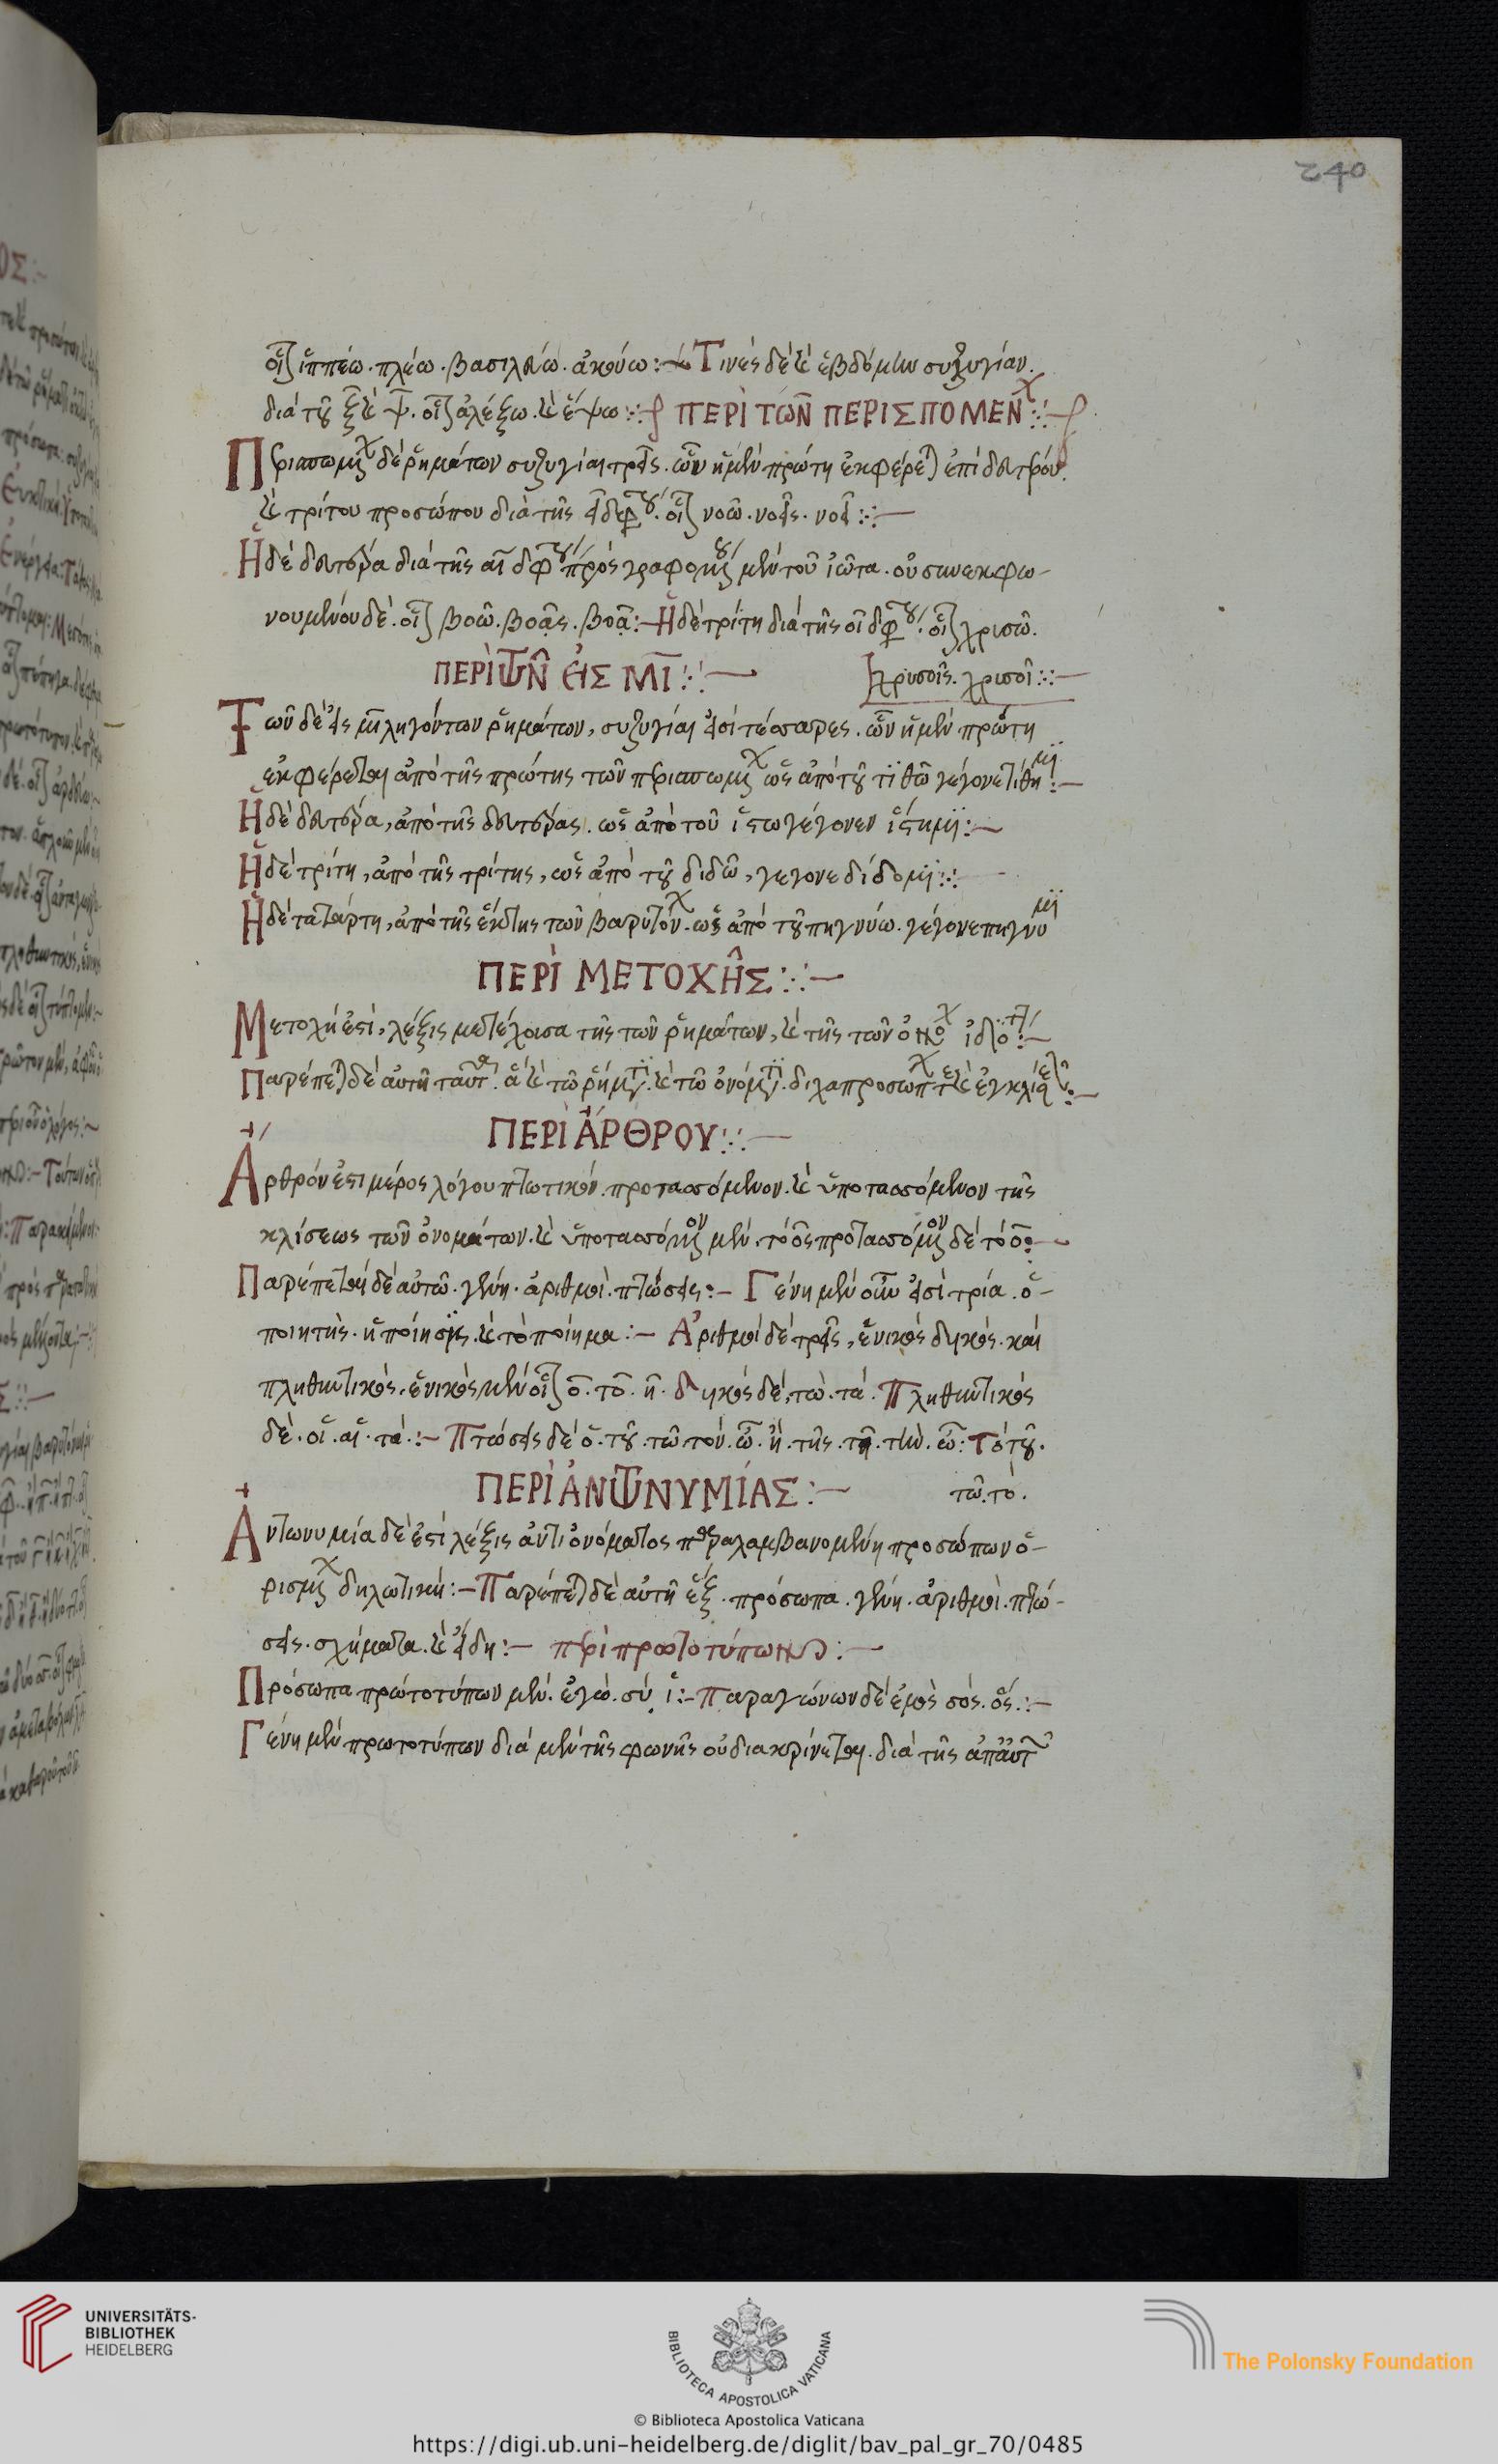 240
οἷον ἱππεύω. πλέω. βασιλεύω. ἀκούω :- Τινὲς δὲ καὶ ἑβδόμην συζυγίαν.
διὰ τοῦ ξ καὶ ψ. οἷον ἀλέξω. καὶ ἕψω :- ΠΕΡῚ ΤΩ͂Ν ΠΕΡΙΣΠΟΜΈΝ
Περισπωμένων δὲ ῥημάτων συζυγίαι τρεῖς. ὧν ἡ μὲν πρώτη ἐκφέρεται ἐπὶ δευτέρου
καὶ τρίτου προσώπου διὰ τῆς ει διφθόγγου. οἷον νοῶ. νοεῖς. νοεῖ :-
Ἡ δὲ δευτέρα διὰ τῆς αι διφθόγγου προσγραφομένου μὲν τοῦ ἰῶτα. οὐ συνεκφω-
νουμένου δέ. οἷον βοῶ. βοᾷς. βοᾷ :- Ἡ δὲ τρίτη διὰ τῆς οι διφθόγγου. οἷον χρυσῶ.
ΠΕΡῚ ΤΩ͂Ν ΕἸΣ ΜΙ :-
χρυσοῖς. χρυσοῖ :-
Τῶν δὲ εἰς μι ληγόντων ῥημάτων, συζυγίαι εἰσὶ τέσσαρες. ὧν ἡ μὲν πρώτη
ἐκφέρεται ἀπὸ τῆς πρώτης τῶν περισπωμένων ὡς ἀπὸ τοῦ τιθῶ γέγονε τίθημι :-
Ἡ δὲ δευτέρα, ἀπὸ τῆς δευτέρας. ὡς ἀπὸ τοῦ ἱστῶ γέγονεν ἵστημι :-
Ἡ δὲ τρίτη, ἀπὸ τῆς τρίτης, ὡς ἀπὸ τοῦ διδῶ, γέγονε δίδομι :-
Ἡ δὲ τετάρτη, ἀπὸ τῆς ἕκτης τῶν βαρυτόνων. ὡς ἀπὸ τοῦ πηγνύω. γέγονε πήγνυμι
ΠΕΡῚ ΜΕΤΟΧΗ͂Σ :-
Μετοχή ἐστι, λέξις μετέχουσα τῆς τῶν ῥημάτων, καὶ τῆς τῶν ὀνομάτων ἰδιότητος :-
Παρέπεται δὲ αὐτῇ ταῦτα. ἃ καὶ τῷ ῥήματι. καὶ τῷ ὀνόματι. δίχα προσώπων τε καὶ ἐγκλίσεων :-
ΠΕΡῚ ἌΡΘΡΟΥ :-
Ἄρθρόν ἐστι μέρος λόγου πτωτικόν. προτασσόμενον. καὶ ὑποτασσόμενον τῆς
κλίσεως τῶν ὀνομάτων. καὶ ὑποτασσόμενον μέν. τὸ ὅς προτασσόμενον δὲ τὸ ὁ :-
Παρέπεται δὲ αὐτῷ. γένη. ἀριθμοί. πτώσεις :- Γένη μὲν οὖν εἰσὶ τρία. ὁ-
ποιητής. ἡ ποίησις. καὶ τὸ ποίημα :- Ἀριθμοὶ δὲ τρεῖς, ἑνικός δυικός. καὶ
πληθυντικός. ἑνικὸς μὲν οἷον ὁ. τό. ἡ. δυικὸς δέ, τώ. τά. Πληθυντικὸς
δέ. οἱ. αἱ. τά. :- Πτώσεις δὲ ὁ. τοῦ. τῷ. τόν. ὦ. ἡ. τῆς. τῇ. τήν. ὦ : Τό τοῦ.
τῷ. τό.
ΠΕΡῚ ἈΝΤΩΝΥΜΊΑΣ :-
Ἀντωνυμία δέ ἐστι λέξις ἀντὶ ὀνόματος παραλαμβανομένη προσώπων ὁ-
ρισμένων δηλωτική :- Παρέπεται δὲ αὐτῇ ἕξ. πρόσωπα. γένη. ἀριθμοί. πτώ-
σεις. σχήματα. καὶ εἴδη :- περὶ πρωτοτύπων :-
Πρόσωπα πρωτοτύπων μέν. ἐγώ. σύ ἵ :- παραγώγων δὲ ἐμός σός. ὅς. :-
Γένη μὲν πρωτοτύπων διὰ μὲν τῆς φωνῆς οὐ διακρίνεται. διὰ τῆς ἀπ' αὐτ
UNIVERSITÄTS-
BIBLIOTHEK
HEIDELBERG
BIBLIOTECA APOSTOLICA VATICANA
The Polonsky Foundation
© Biblioteca Apostolica Vaticana
https://digi.ub.uni-heidelberg.de/diglit/bav_pal_gr_70/0485